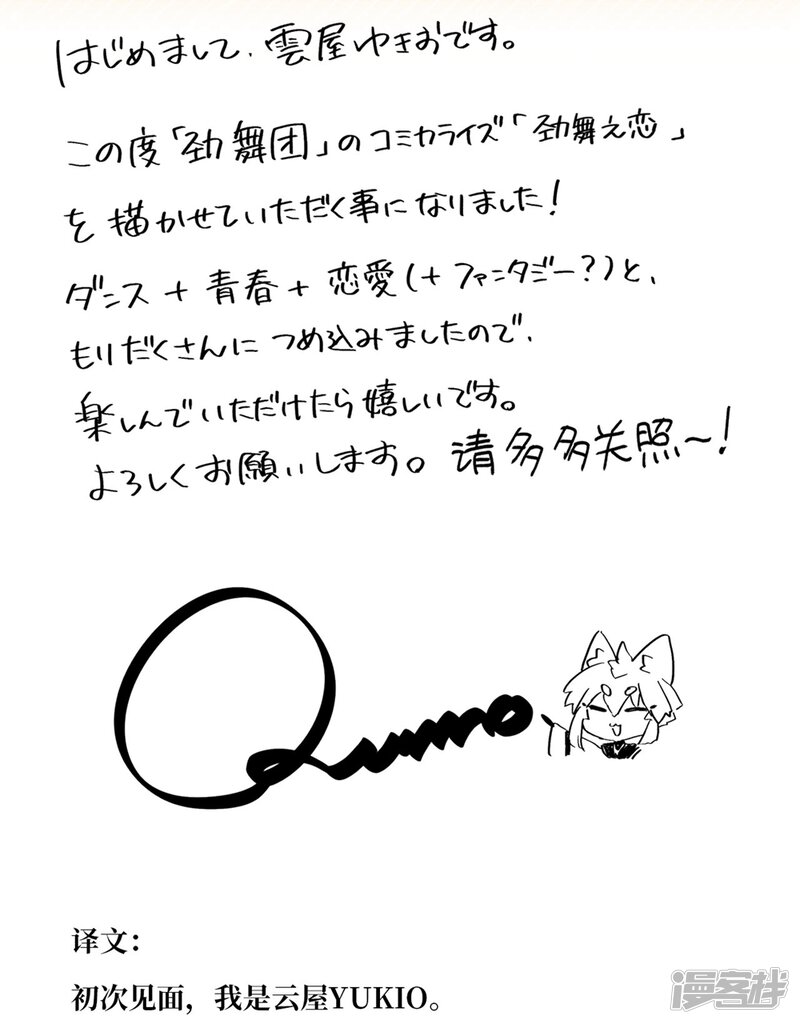 はじめまして、雲屋ゆきおです。
この度「劲舞团」のコミカライズ「劲舞之恋」
を描かせていただく事になりました!
ダンス+青春+恋愛(+ファンタジー?)と、
もりだくさんにつめ込みましたので、
楽しんでいただけたら嬉しいです。
よろしくお願いします。请多多关照~!
译文:
初次见面,我是云屋YUKIO。
漫客栈